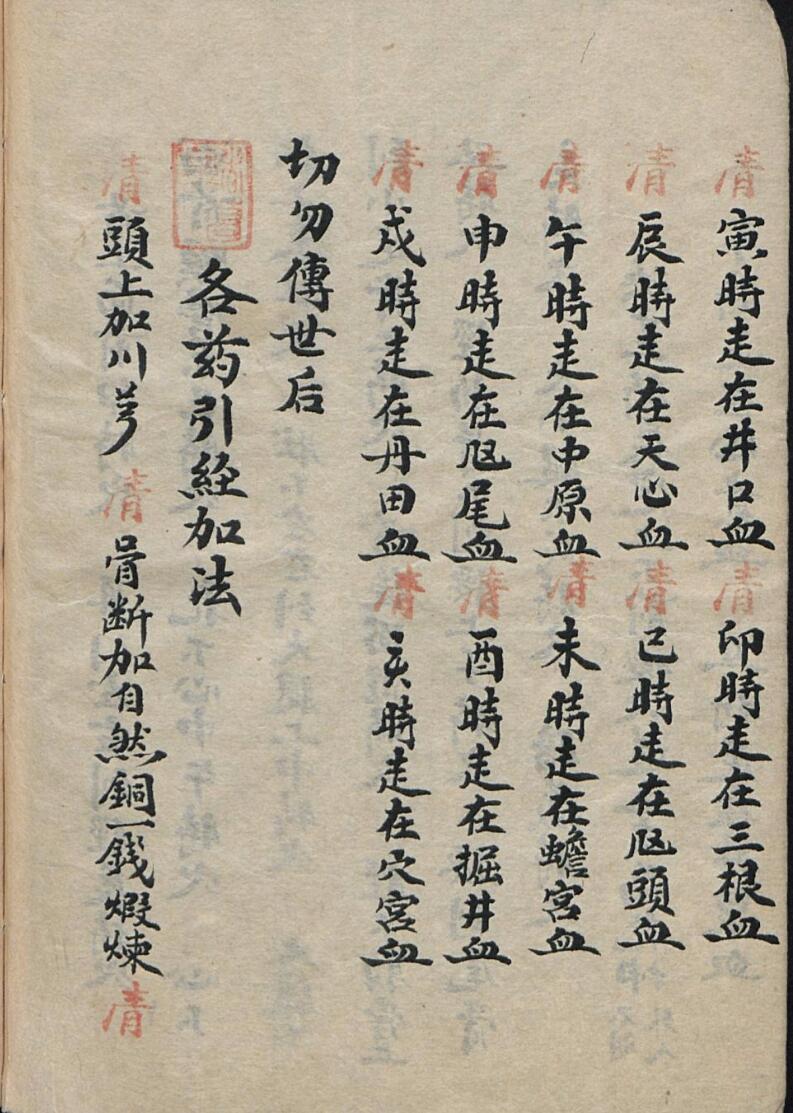 清 寅時走在井口血 清 卯時走在三根血
清 辰時走在天心血 清 巳時走在凤頭血
清 午時走在中原血 清 未時走在蟾宮血
清 申時走在凤尾血 清 酉時走在掘井血
清 戌時走在丹田血 清 亥時走在穴宮血
切勿傳世后
各药引經加法
清 頭上加川芎 清 骨断加自然銅一錢煅煉 清